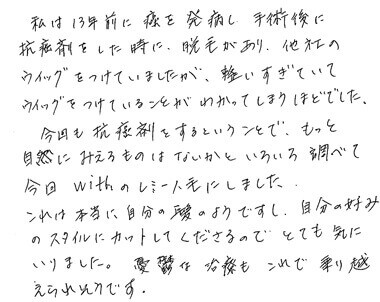 私は13年前に癌を発病し手術後に
抗癌剤をした時に、脱毛があり、他社の
ウイッグをつけていましたが、整いすぎていて
ウイッグをつけていることがわかってしまうほどでした。
今回も抗癌剤をするということで、もっと
自然にみえるものはないかといろいろ調べて
今回withのレミー人毛にしました。
これは本当に自分の髪のようですし、自分の好み
のスタイルにカットしてくださるのでとても気に
いりました。憂鬱な治療もこれで乗り越
えられそうです。